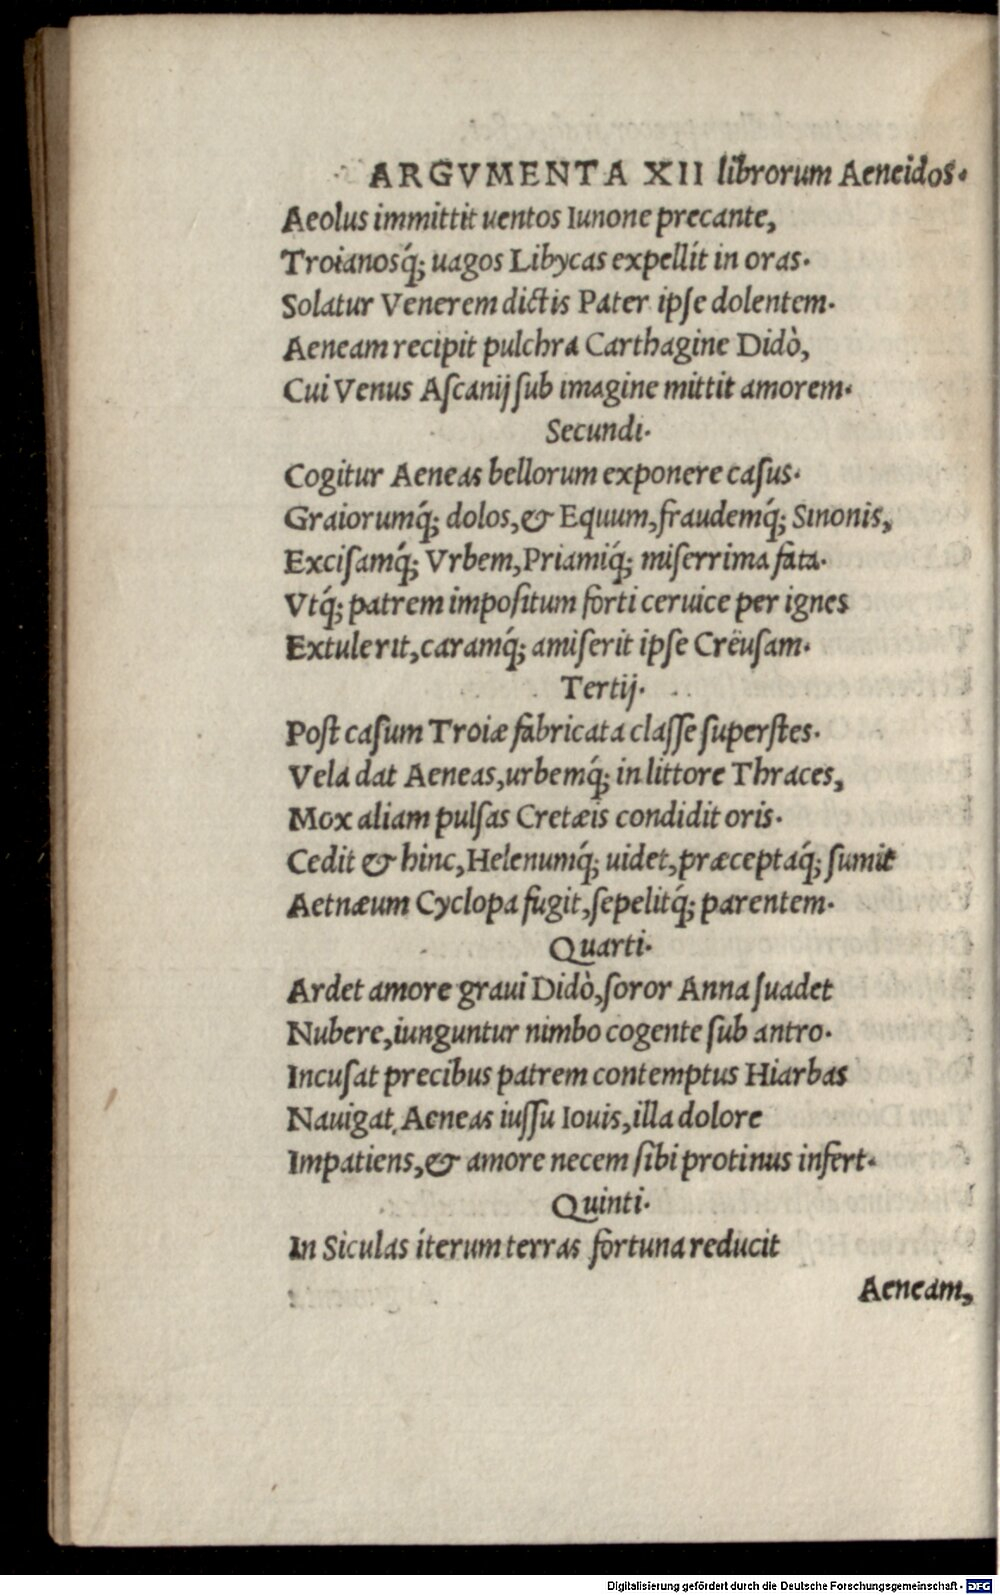 ARGVMENTA XII librorum Aeneidos.
Aeolus immittit uentos Iunone precante,
Troianosq́; uagos Libycas expellit in oras.
Solatur Venerem dictis Pater ipſe dolentem.
Aeneam recipit pulchra Carthagine Didò,
Cui Venus Aſcanij ſub imagine mittit amorem.
Secundi.
Cogitur Aeneas bellorum exponere caſus.
Graiorumq́; dolos, & Equum, fraudemq́; Sinonis,
Exciſamq́; Vrbem, Priamiq́; miſerrima fata.
Vtq́; patrem impoſitum forti ceruice per ignes
Extulerit, caramq́; amiſerit ipſe Crëuſam.
Tertij.
Poſt caſum Troiæ fabricata claſſe ſuperſtes.
Vela dat Aeneas, urbemq́; in littore Thraces,
Mox aliam pulſas Cretæis condidit oris.
Cedit & hinc, Helenumq́; uidet, præceptaq́; ſumit
Aetnæum Cyclopa fugit, ſepelitq́; parentem.
Quarti.
Ardet amore graui Didò, ſoror Anna ſuadet
Nubere, iunguntur nimbo cogente ſub antro.
Incuſat precibus patrem contemptus Hiarbas
Nauigat Aeneas iuſſu Iouis, illa dolore
Impatiens, & amore necem ſibi protinus infert.
Quinti.
In Siculas iterum terras fortuna reducit
Aeneam,
Digitalisierung gefördert durch die Deutsche Forschungsgemeinschaft - DFG